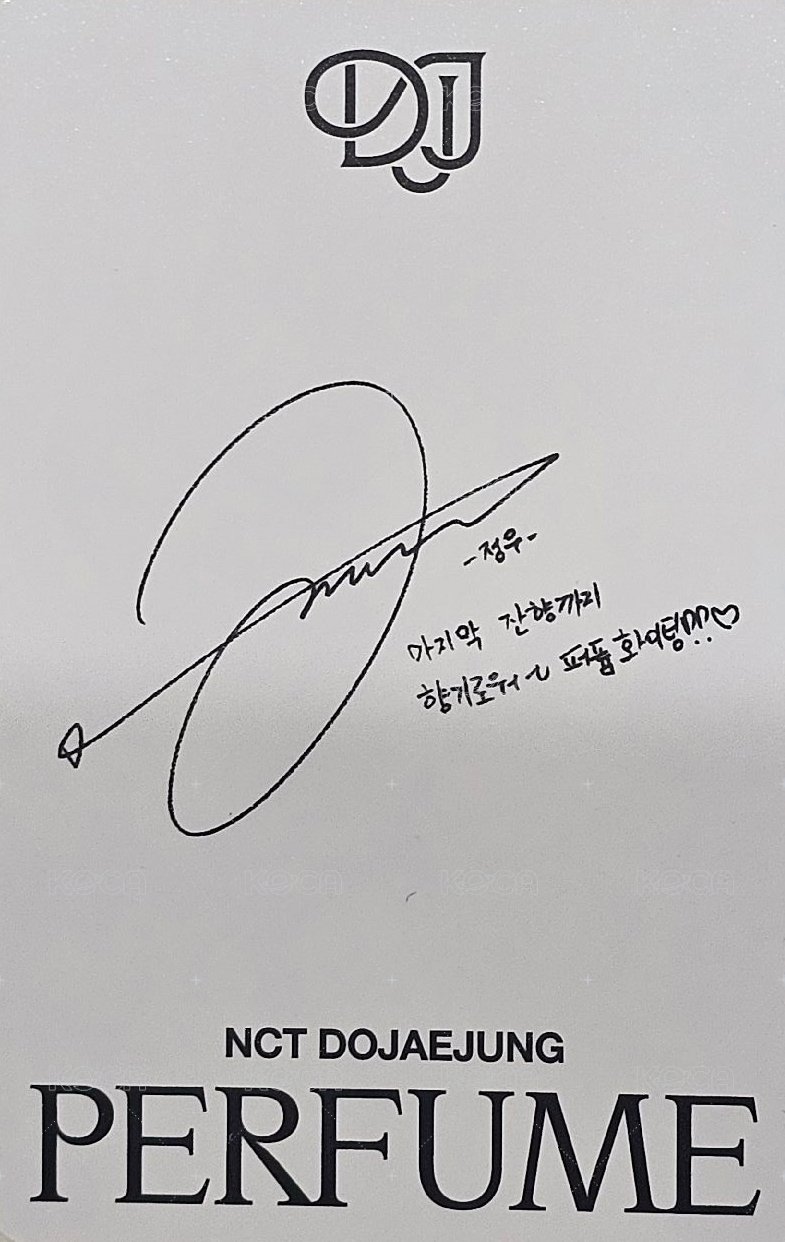 DJ
-정우-
마지막 잔향까지
향기로워~ 퍼퓸 화이팅!!♡
NCT DOJAEJUNG
PERFUME